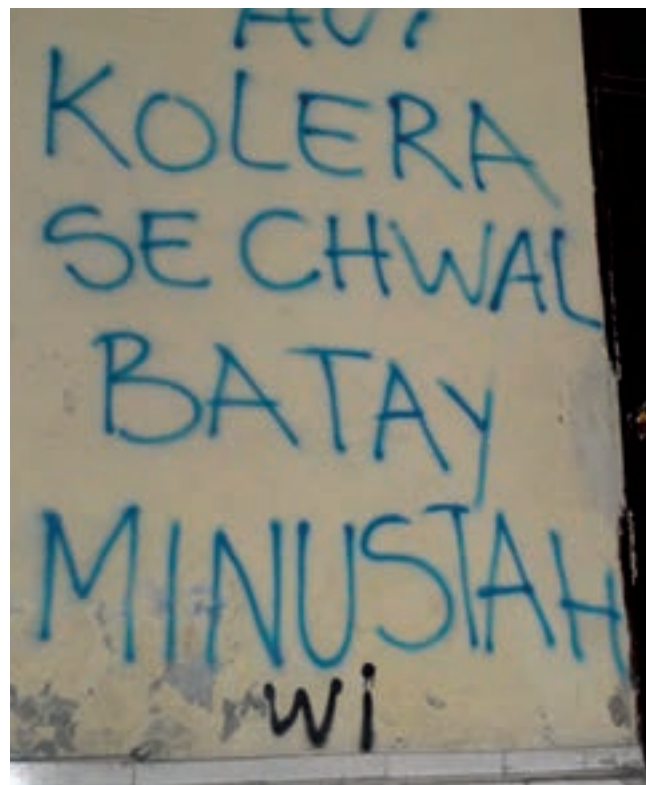 KOLERA
SE CHWAL
BATAY
MINUSTAH
wi